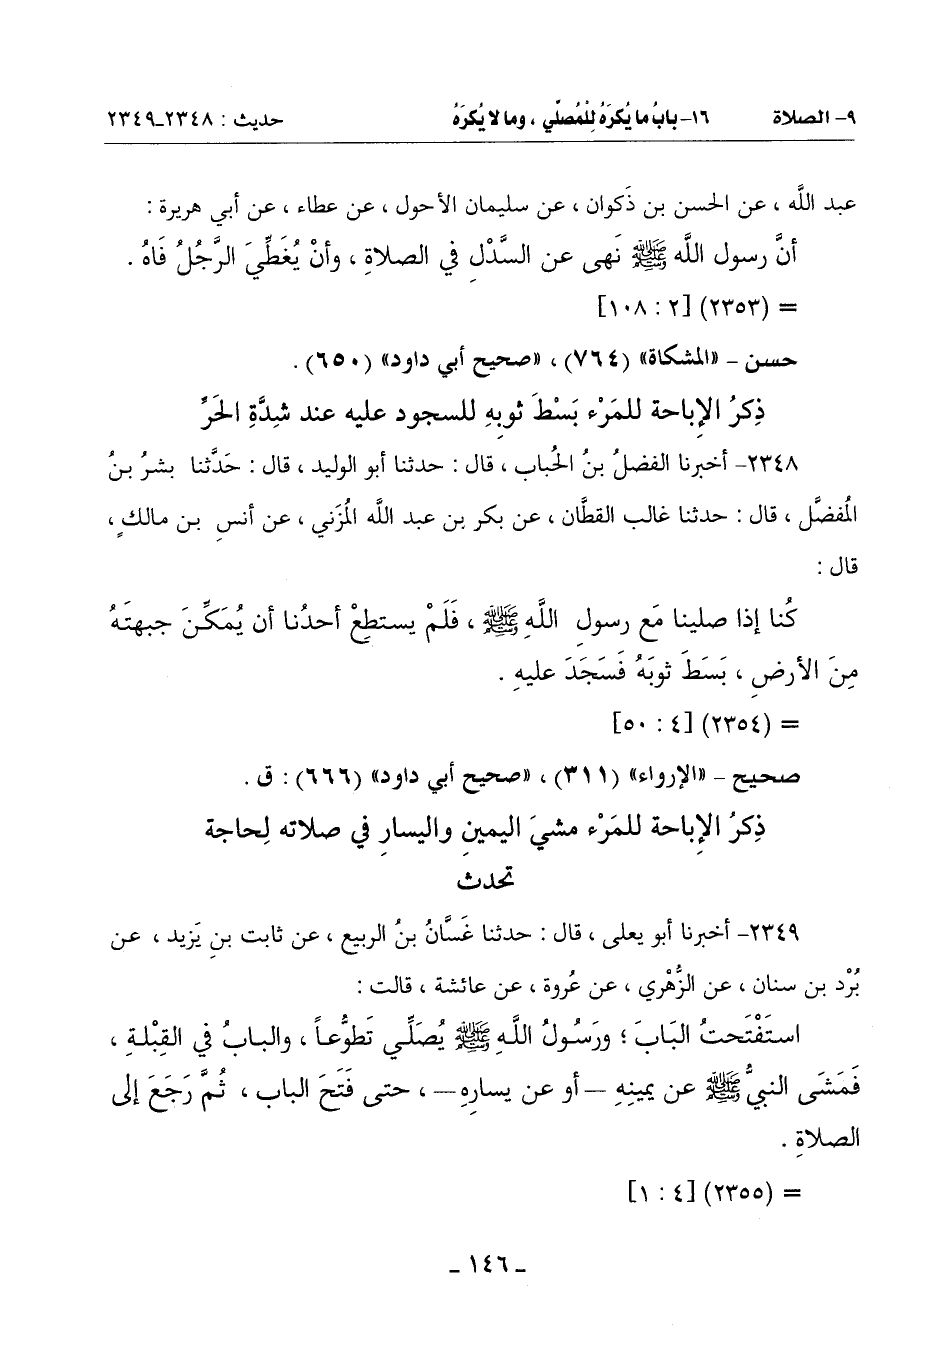 ٩- الصلاة ١٦- بابُ ما يُكرَهُ لِلْمُصلِّي ، وما لا يُكرَهُ حديث : ٢٣٤٨-٢٣٤٩
عبد اللَّه ، عن الحسن بن ذَكوان ، عن سليمان الأحول ، عن عطاء ، عن أبي هريرة :
أنَّ رسول اللَّه ﷺ نَهى عن السَّدْلِ في الصلاةِ ، وأنْ يُغَطِّيَ الرَّجُلُ فَاهُ .
= (٢٣٥٣) [٢ : ١٠٨]
حسن – «المشكاة» (٧٦٤) ، «صحيح أبي داود» (٦٥٠) .
ذِكرُ الإباحة للمَرْء بَسْطَ ثوبِهِ للسجود عليه عند شِدَّةِ الحَرِّ
٢٣٤٨- أخبرنا الفضلُ بنُ الحُباب ، قال : حدثنا أبو الوليد ، قال : حَدَّثنا بشرُ بنُ
المُفضَّل ، قال : حدثنا غالب القطَّان ، عن بكر بن عبد اللَّه المُزَني ، عن أنسِ بن مالكٍ ،
قال :
كُنا إذا صلينا مَع رسولِ اللَّهِ ﷺ ، فَلَمْ يستطِعْ أحدُنا أن يُمَكِّنَ جبهتَهُ
مِنَ الأرضِ ، بَسَطَ ثوبَهُ فَسَجَدَ عليهِ .
= (٢٣٥٤) [٤ : ٥٠]
صحيح – «الإرواء» (٣١١) ، «صحيح أبي داود» (٦٦٦) : ق .
ذِكرُ الإباحة للمَرْء مشيَ اليمينِ واليسارِ في صلاته لِحاجة
تحدث
٢٣٤٩- أخبرنا أبو يعلى ، قال : حدثنا غَسَّانُ بنُ الربيع ، عن ثابت بنِ يَزيد ، عن
بُرْد بن سنان ، عن الزُّهْري ، عن عُروة ، عن عائشة ، قالت :
استَفْتَحتُ البَابَ ؛ ورَسُولُ اللَّهِ ﷺ يُصَلِّي تَطوُّعاً ، والبابُ في القِبْلةِ ،
فَمَشَى النبيُّ ﷺ عن يمينِهِ –أو عن يسارِهِ– ، حتى فَتَحَ الباب ، ثُمَّ رَجَعَ إلى
الصلاةِ .
= (٢٣٥٥) [٤ : ١]
- ١٤٦ -